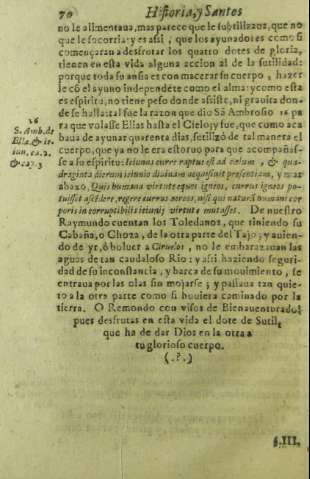 70 Historia, y Santos
no le alimentaua, mas parece que le sustilizaua, que no
que le socorria: y es assi, que los ayunadores como si
començaran a desfrutar los quatro dotes de gloria,
tienen en esta vida alguna accion al de la sutilidad:
porque toda su ansia es con macerar su cuerpo, hazer
le cō el ayuno independēte como el alma: y como esta
es espiritu, no tiene peso donde assiste, ni grauita don-
de se halla: tal fue la razon que dio Sā Ambrosio 16 pa
ra que volasse Elias hasta el Cielo, y fue, que como aca
baua de ayunar quarenta dias, sutilizò de tal manera el
cuerpo, que ya no le era estoruo para que acompañas-
se a su espiritu: Ieiunus curru raptus est ad cœlum, & qua-
draginta dierum ieiunio diuinam acquisiuit præsentiam, y mas
abaxo. Quis humana virtute equos igneos, currus igneos po-
tuisset ascēdere, regere currus aereos, nisi qui naturā humani cor
poris in corruptibilis ieiunij virtute mutasset. De nuestro
Raymundo cuentan los Toledanos, que teniendo su
Cabaña, o Choza, de la otra parte del Tajo; y auien-
do de yr, ò boluer a Ciruelos, no le embarazauan las
aguas de tan caudaloso Rio: y assi haziendo seguri-
dad de su inconstancia, y barca de su mouimiento, se
entraua por las olas sin mojarse; y passaua tan quie-
to a la otra parte como si huuiera caminado por la
tierra. O Remondo con visos de Bienauenturado!
pues desfrutas en esta vida el dote de Sutil,
que ha de dar Dios en la otra a
tu glorioso cuerpo.
(.?.)
16
S. Amb. de
Elia. & ie-
iun, ca. 2.
& ca. 3
§. III.